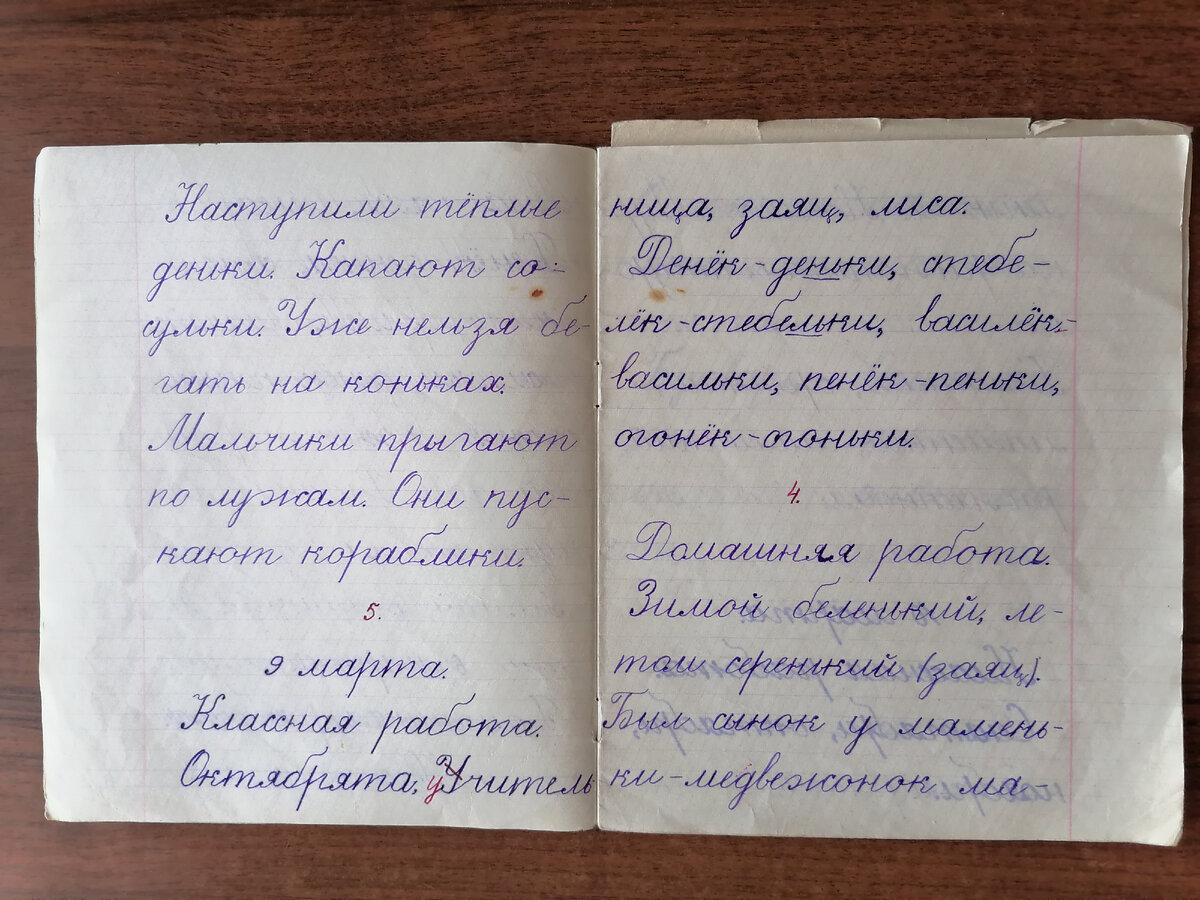 Наступили тёплые
деньки. Капают со-
сульки. Уже нельзя бе-
гать на коньках.
Мальчики прыгают
по лужам. Они пус-
кают кораблики.
5.
9 марта.
Классная работа.
Октябрята, уУчитель
ница, заяц, лиса.
Денёк-деньки, стебе-
лёк-стебельки, василёк-
васильки, пенёк-пеньки,
огонёк-огоньки.
4.
Домашняя работа.
Зимой беленький, ле-
том серенький (заяц).
Был сынок у мамень-
ки-медвежонок ма-